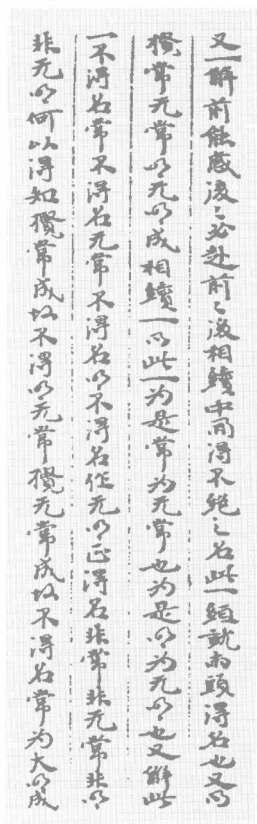 又一解前能感後〻必赴前〻後相續中間得不絶之名此一就兩頭得名也又問
攬常无常明无明成相續一問此一為是常為无常也為是明為无明也又解此
一不得名常不得名无常不得名明不得名作无明正得名非常非无常非明
非无明何以得知攬常成故不得明无常攬无常成故不得名常為大明成